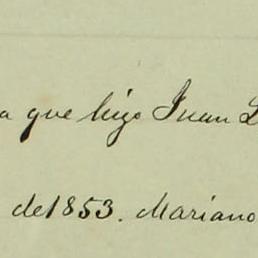 a que hizo Juan
de 1853. Mariano